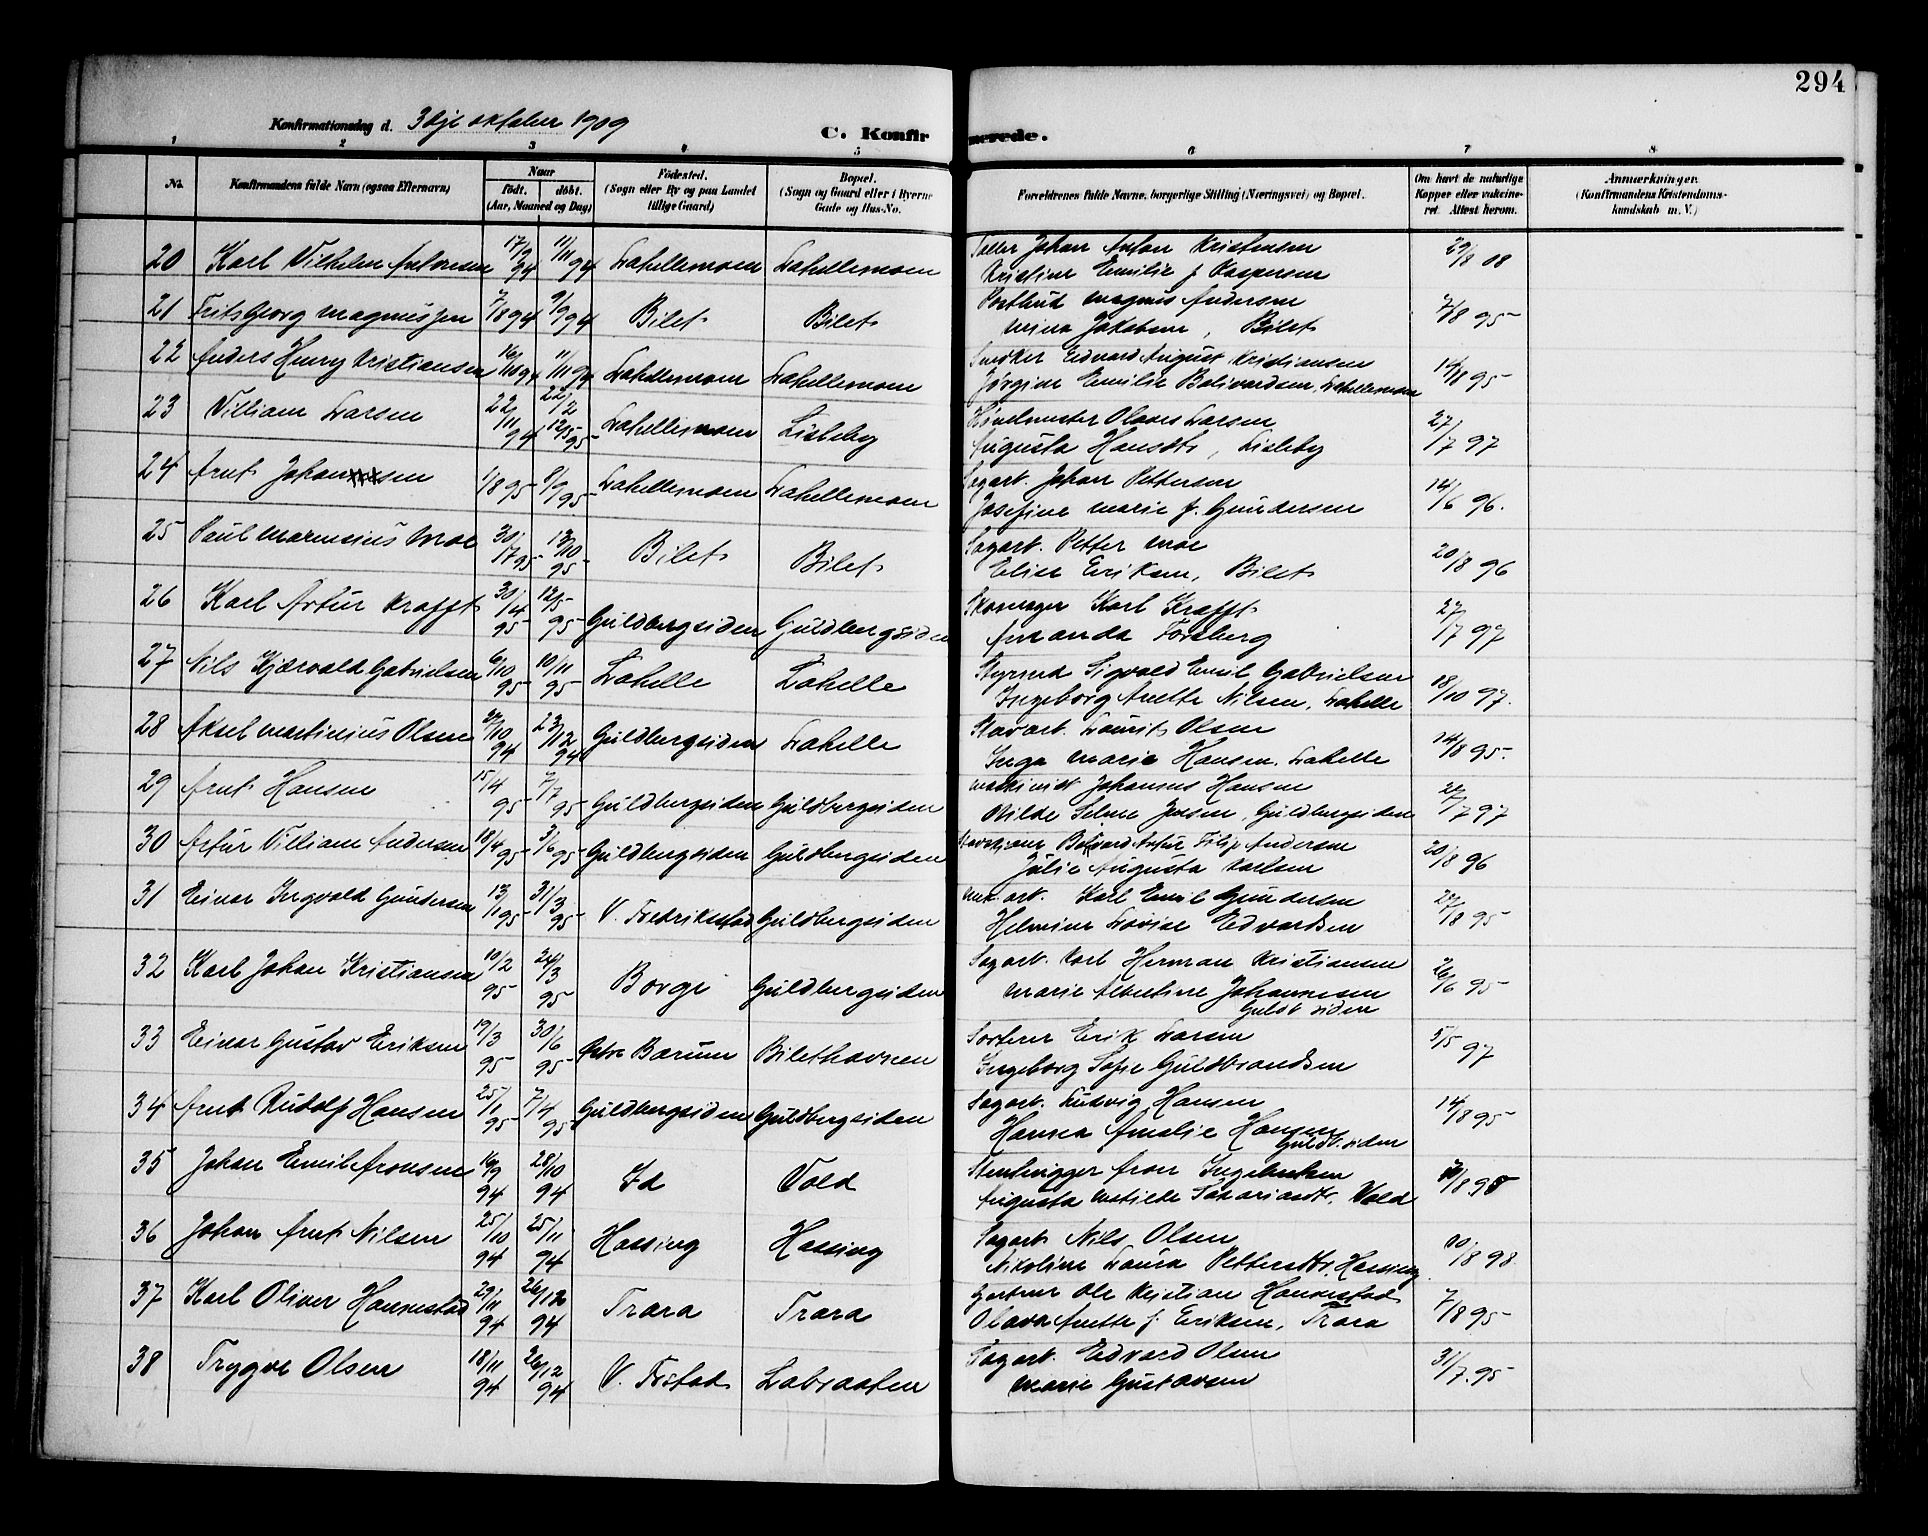 294
Konfirmationsdag d. 3dje oktober 1909 C. Konfirmerede.
1 2 3 4 5 6 7 8
No. Konfirmandens fulde Navn (ogsaa Efternavn) Naar født. døbt. (Aar, Maaned og Dag) Fødested. (Sogn eller By og paa Landet tillige Gaard) Bopæl. (Sogn og Gaard eller i Byerne Gade og Hus-No. Forældrenes fulde Navne, borgerlige Stilling (Næringsvei) og Bopæl. Om havt de naturlige Kopper eller vaksineret. Attest herom. Anmærkninger. (Konfirmandens Kristendomskundskab m. V.)
20 Karl Vilhelm Antonsen 17/9 94 11/11 94 Lahellemoen Lahellemoen Teller Johan Anton Kristensen 29/8 08
Kristine Emilie f Kaspersen
21 Frits Georg Magnussen 7/8 94 9/9 94 Bilet Bilet Postbud Magnus Andersen 7/8 95
Mina Jakobsen, Bilet
22 Anders Henry Kristiansen 16/10 94 11/11 94 Lahellemoen Lahellemoen Snedker Edvard August Kristiansen 14/8 95
Jørgine Emilie Bolivardsen, Lahellemoen
23 Villiam Larsen 22/11 94 22/2 12/5 95 Lahellemoen Lisleby Høvelmester Olaves Larsen 27/7 97
Augusta Hansdtr, Lisleby
24 Arnt Johansen 1/8 95 8/9 95 Lahellemoen Lahellemoen Sagarb. Johan Pettersen 14/6 96.
Josefine Marie f. Gundersen
25 Paul Marinius Moe 30/7 95 13/10 95 Bilet Bilet Sagarb. Petter Moe 20/8 96
Elise Eriksen, Bilet
26 Karl Artur Krafft 30/4 95 12/5 95 Guldbergsiden Guldbergsiden Skomager Karl Krafft 27/7 97
Amanda Forsberg
27 Nils Kjærvald Gabrielsen 6/10 95 10/11 95 Lahelle Lahelle Styrmd Sigvald Emil Gabrielsen 18/10 97.
Ingeborg Anette Nilsen, Lahelle
28 Aksel Martinius Olsen 27/10 94 23/12 94 Guldbergsiden Lahelle Stavarb. Laurits Olsen 14/8 95.
Inga Marie Hansen. Lahelle
29 Arnt Hansen 15/4 95 7/7 95 Guldbergsiden Guldbergsiden Maskinist Johannes Hansen 27/7 97
Milde Seline Jensen, Guldbergsiden
30 Artur Villiam Andersen 18/4 95 3/6 95 Guldbergsiden Guldbergsiden Artur Filip Andersen 20/8 96
Julie Augusta Karlsen
31 Einar Ingvald Gundersen 13/1 95 31/3 95 V. Fredrikstad Guldbergsiden Mek. arb. Karl Emil Gundersen 27/8 95
Helmine Lovise Edvardsen
32 Karl Johan Kristiansen 10/2 95 24/3 95 Borge Guldbergsiden Sagarb. Karl Herman Kristiansen 26/6 95
Marie Albertine Johannesen
Guldb siden
33 Einar Gustav Eriksen 19/3 95 30/6 95 Østre Bærum Bilethavnen Sorterer Erik Larsen 5/5 97
Ingeborg Sofie Guldbrandsen
34 Arnt Rudolf Hansen 25/1 95 7/4 95 Guldbergsiden Guldbergsiden Sagarb. Ludvig Hansen 14/8 95
Hansea Amalie Hansen
Guldb. siden
35 Johan Emil Aronsen 16/9 94 28/10 94 Id Vold Stenhugger Aron Ingebretsen
Augusta Matilde Sakariasdtr, Vold
36 Johan Arnt Nilsen 25/10 94 25/11 94 Hassing Hassing Sagarb. Nils Olsen 10/8 98
Nikoline Laura Pettersdtr, Hassing
37 Karl Oliver Hannestad 29/11 94 26/12 94 Trara Trara Gartner Ole Kristian Hannestad 7/8 95
Olava Anette f. Eriksen, Trara
38 Trygve Olsen 18/11 94 26/12 94 V. Frstad Labraaten Sagarb. Edvard Olsen 31/7 95
Marie Gustavsen